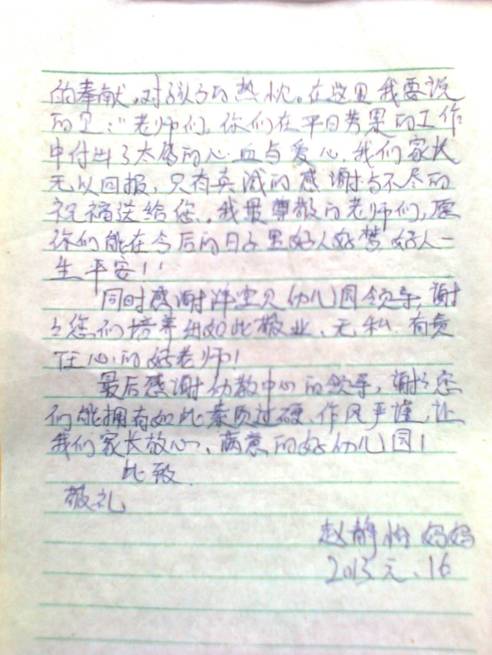 的奉献,对孩子的热忱。在这里我要说
的是:"老师们,你们在平日劳累的工作
中付出了太多的心血与爱心,我们家长
无以回报,只有真诚的感谢与不尽的
祝福送给您,我最尊敬的老师们,愿
你们能在今后的日子里好人好梦 好人一
生平安!!
同时感谢洋宝贝幼儿园领导,谢
谢您们培养出如此敬业、无私、有责
任心的好老师!
最后感谢幼教中心的领导,谢谢您
们能拥有如此素质过硬,作风严谨,让
我们家长放心、满意的好幼儿园!
此致
敬礼
赵静怡 妈妈
2013 元、16